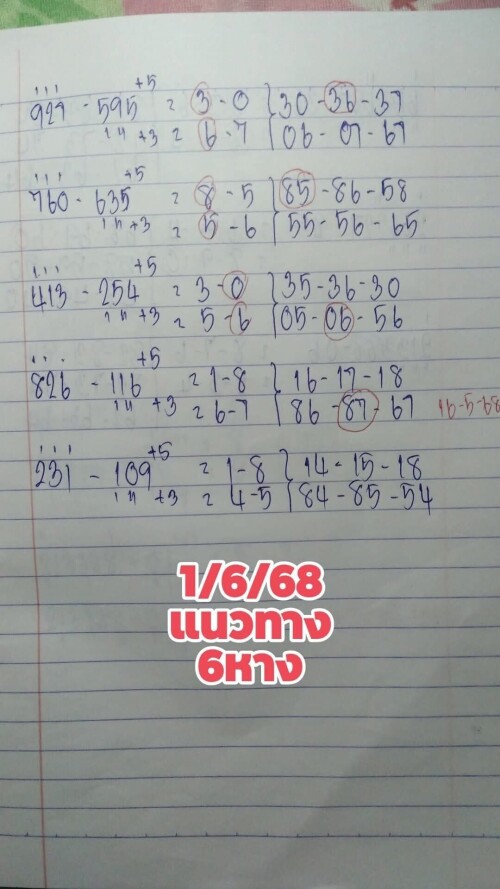 ı ı ı +5
927 - 595 = 3 - 0 } 30 - 36 - 37
ın +3 = 6 - 7 } 06 - 07 - 67
ı ı ı +5
760 - 635 = 8 - 5 } 85 - 86 - 58
ın +3 = 5 - 6 } 55 - 56 - 65
ı ı ı +5
413 - 254 = 3 - 0 } 35 - 36 - 30
ın +3 = 5 - 6 } 05 - 06 - 56
. . . +5
826 - 116 = 1 - 8 } 16 - 17 - 18
ın +3 = 6 - 7 } 86 - 87 - 67
ı ı ı +5
231 - 109 = 1 - 8 } 14 - 15 - 18
ın +3 = 4 - 5 } 84 - 85 - 54
1/6/68
แนวทาง
6หาง